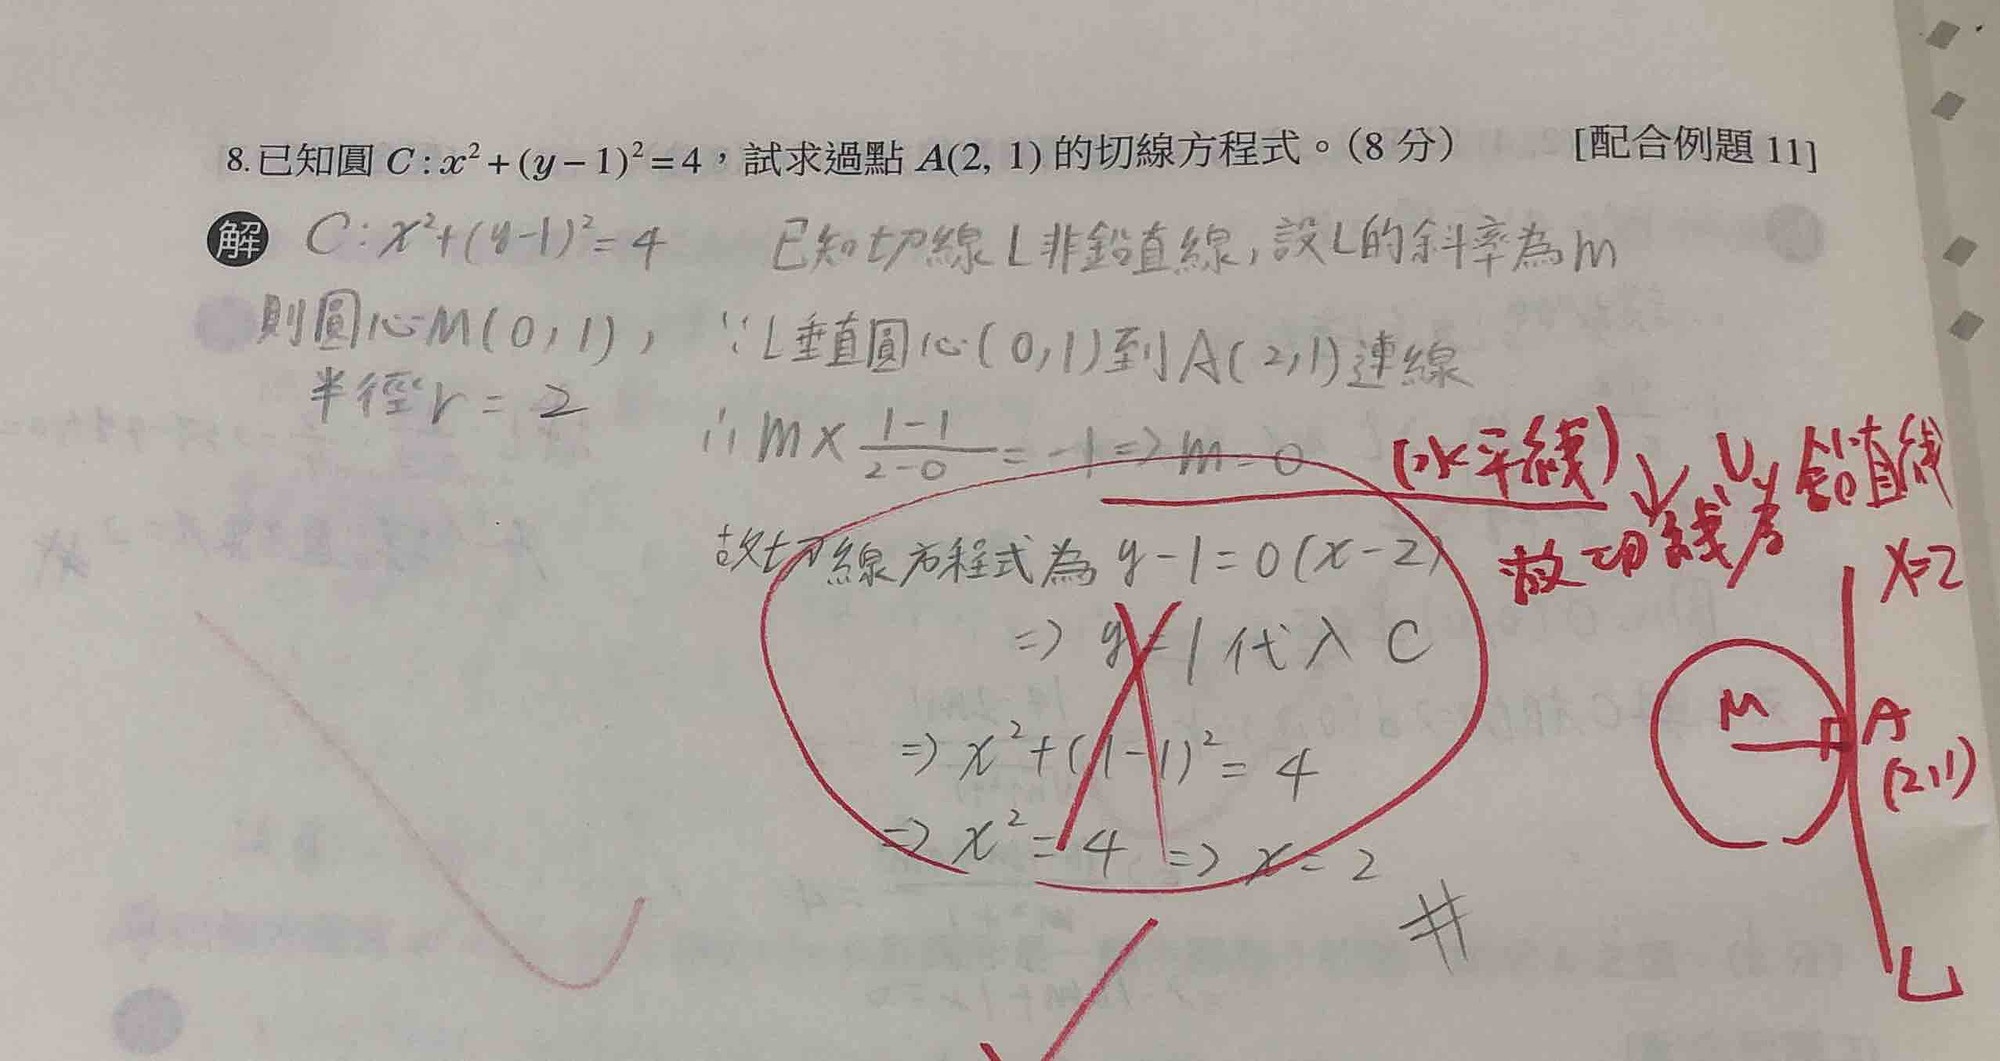 8.已知圓 C : x² + (y − 1)² = 4，試求過點 A(2, 1) 的切線方程式。（8 分） [配合例題 11]
解 C : x² + (y-1)² = 4 已知切線 L 非鉛直線, 設L的斜率為m
則圓心M(0,1), ∵L垂直圓心(0,1)到A(2,1)連線
半徑r = 2
∴ m × (1-1)/(2-0) = -1 => m = 0 (水平線) 鉛直線
故切線方程式為 y-1=0(x-2) 故切線為 x=2
=> y=1代入 C
M A
=> x² + (1-1)² = 4 (2,1)
=> x² = 4 => x = 2
#
L